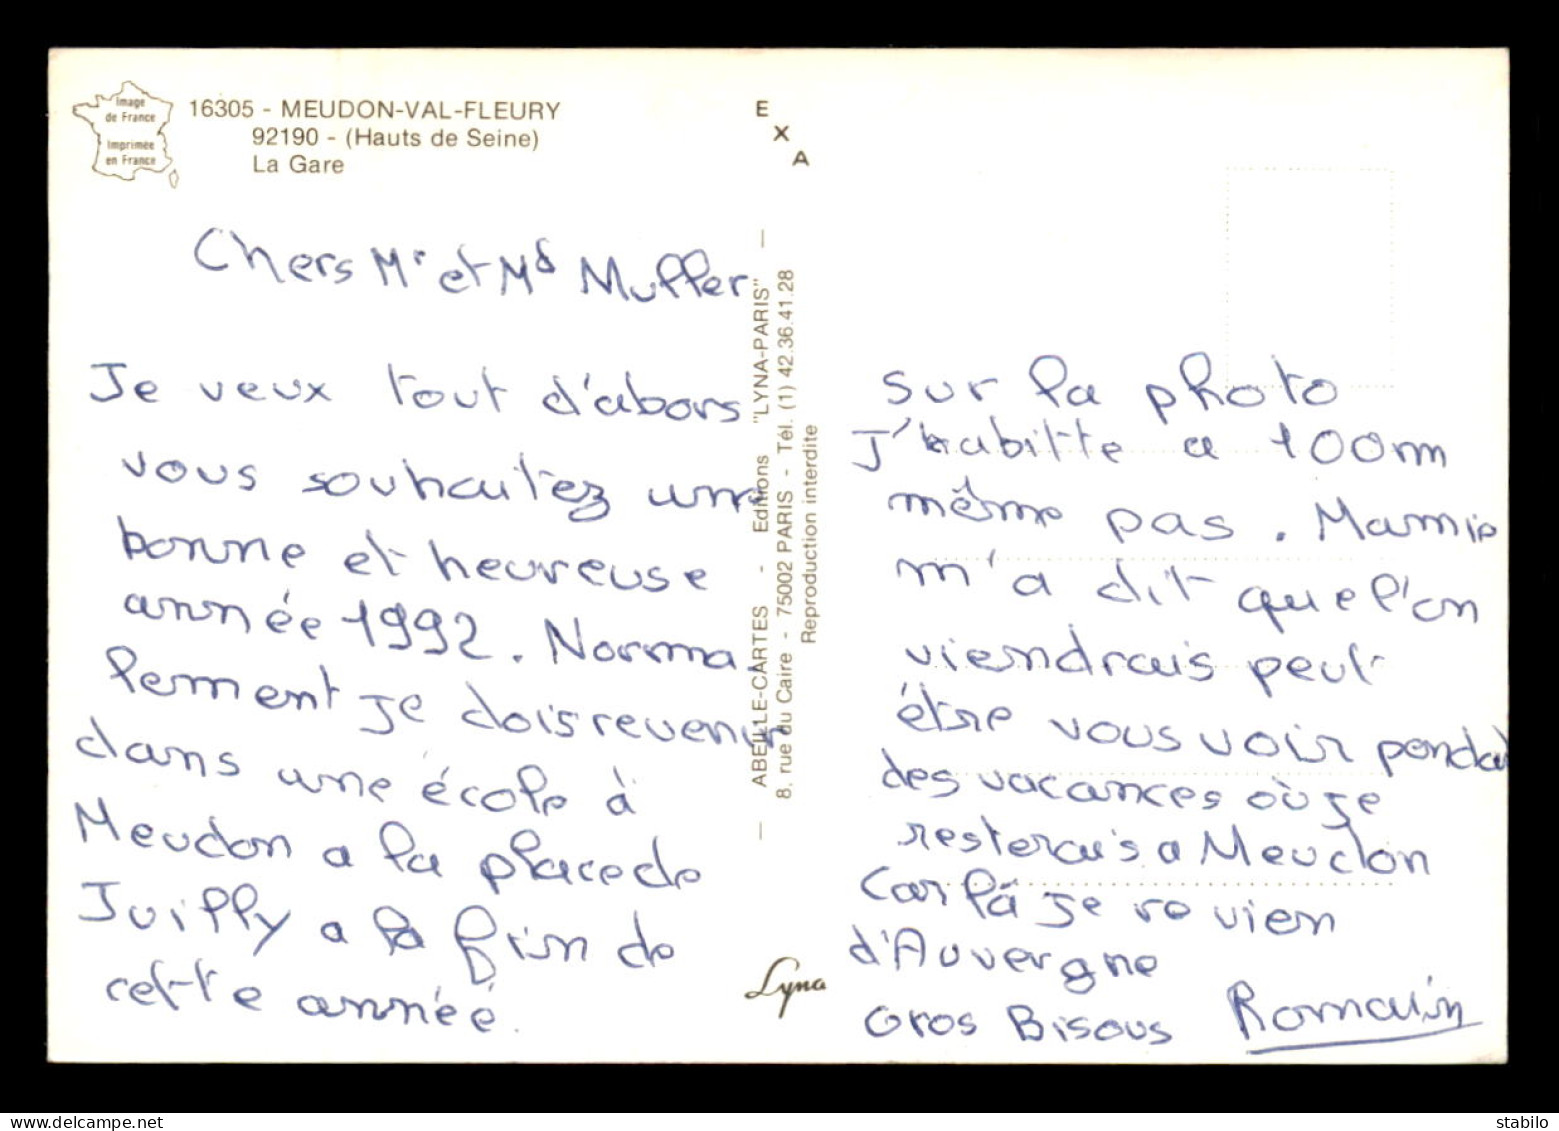 Image
de France
Imprimée
en France
16305 - MEUDON-VAL-FLEURY
92190 - (Hauts de Seine)
La Gare
E
X
A
Chers Mr et Md Muller
Je veux tout d'abors
vous souhaitez une
bonne et heureuse
année 1992. Norma-
lement je dois revenir
dans une école à
Meudon a la place de
Juilly a la fin de
cette annéé.
ABEILLE-CARTES - Editions "LYNA-PARIS"
8, rue du Caire - 75002 PARIS - Tél. (1) 42.36.41.28
Reproduction interdite
Lyna
sur la photo
J'habitte a 100m
même pas. Mamie
m'a dit que l'on
viendrais peut
étre vous voir pendat
des vacances où je
resterais a Meudon
Car lá je re vien
d'Auvergne
Gros Bisous Romain
stabilo